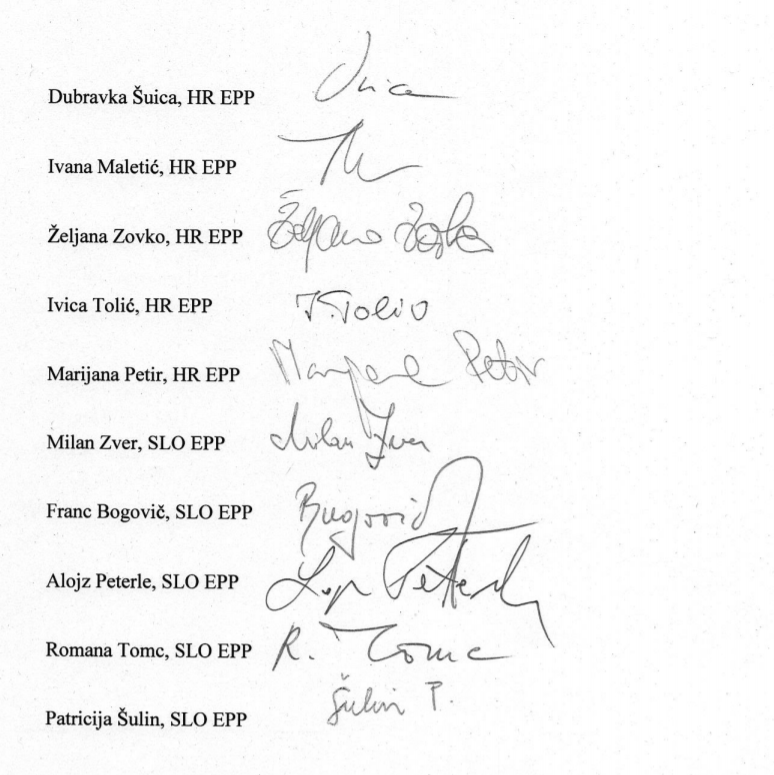 Dubravka Šuica, HR EPP Šuica
Ivana Maletić, HR EPP
Željana Zovko, HR EPP Željana Zovko
Ivica Tolić, HR EPP I. Tolić
Marijana Petir, HR EPP Marijana Petir
Milan Zver, SLO EPP Milan Zver
Franc Bogovič, SLO EPP Bogovič
Alojz Peterle, SLO EPP Peterle
Romana Tomc, SLO EPP R. Tomc
Patricija Šulin, SLO EPP Šulin P.